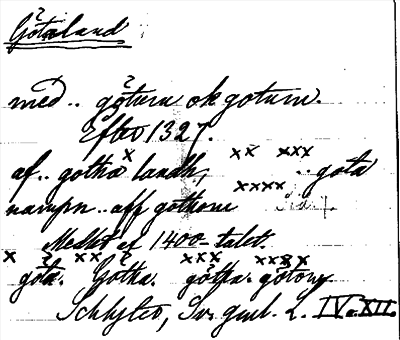 Götaland
med .. götum ok gotum.
Efter 1327.
af .. gotha landh, .. gota
nampn .. aff gothom
Medlt af 1400-talet.
göta. Gotha. götha. götom
Schlyter, Sv. gml. L. IV. XII.